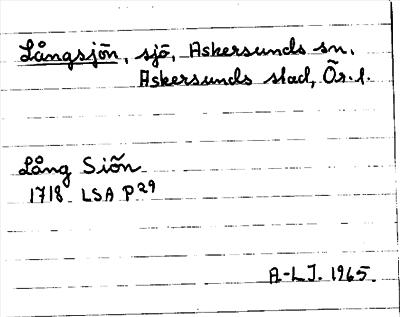 Långsjön, sjö, Askersunds sn,
Askersunds stad, Ör. l.
Lång Siön
1718 LSA P29
A-LJ. 1965.